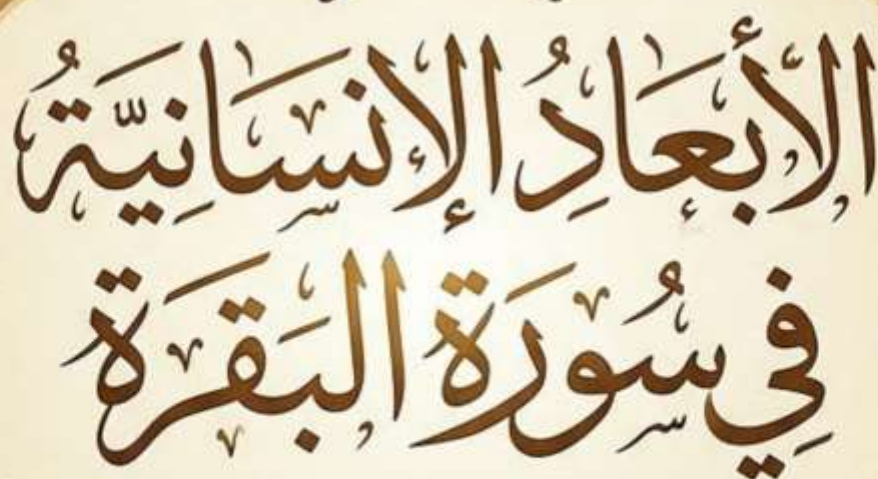 الأَبعَادُ الإنسَانِيَّةُ
فِي سُورَة البَقَرَة